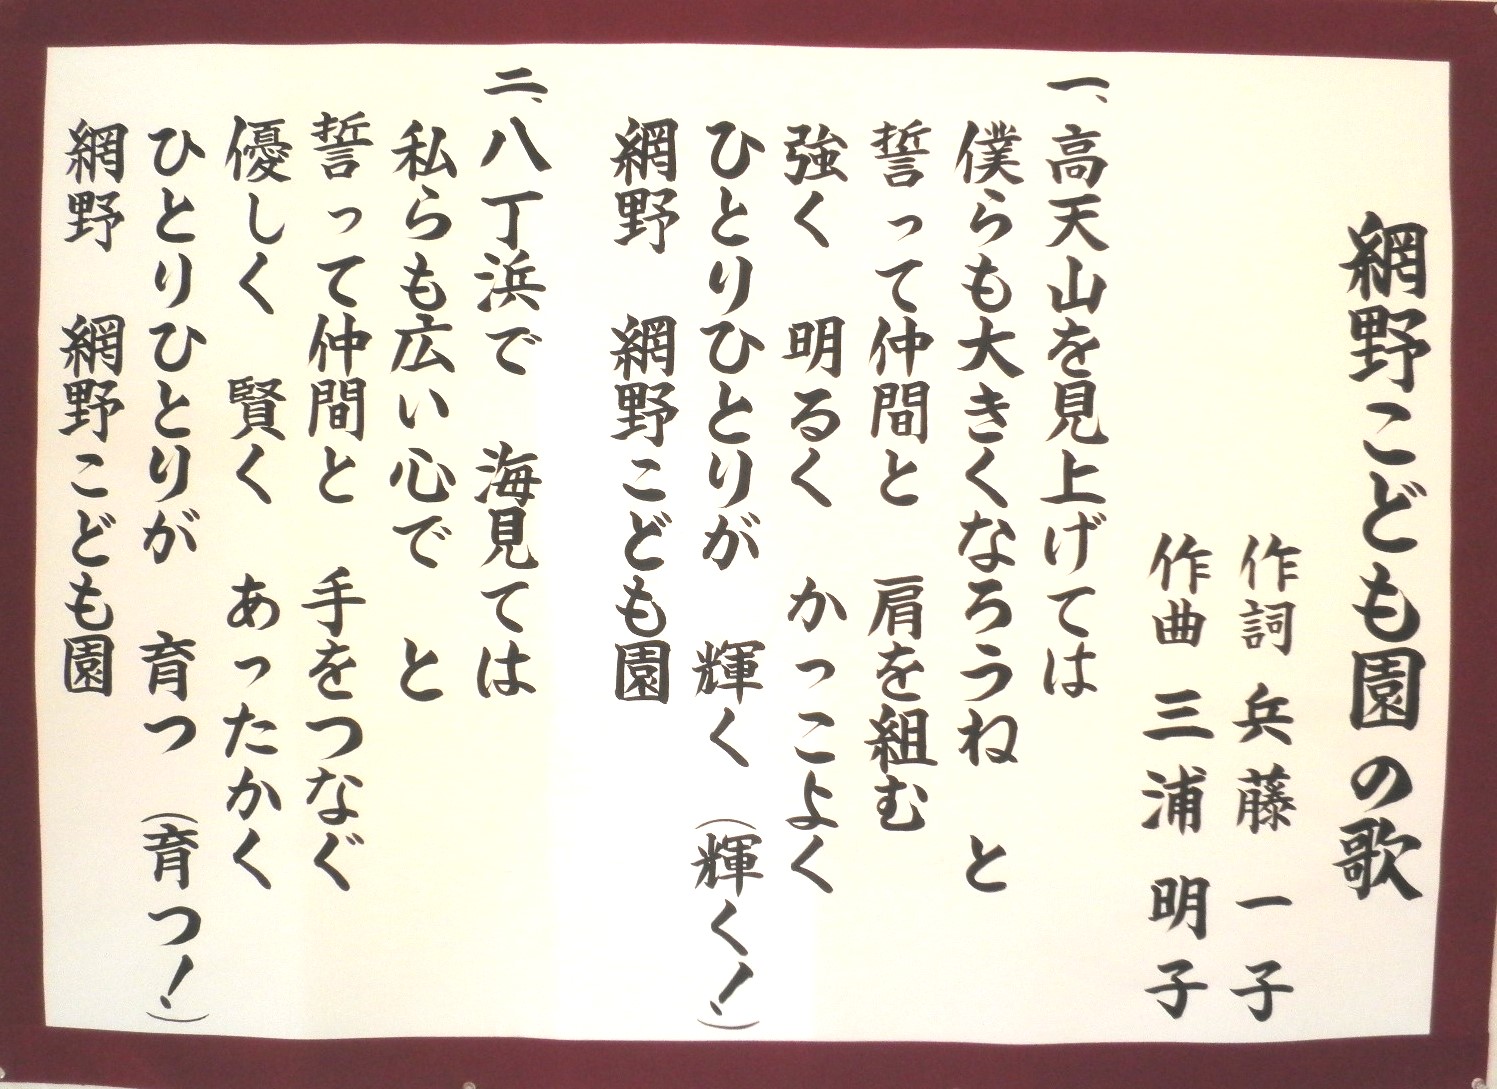 網野こども園の歌
作詞 兵藤 一子
作曲 三浦 明子
一、高天山を見上げては
僕らも大きくなろうね と
誓って仲間と 肩を組む
強く 明るく かっこよく
ひとりひとりが 輝く (輝く!)
網野 網野こども園
二、八丁浜で 海見ては
私らも広い心で と
誓って仲間と 手をつなぐ
優しく 賢く あったかく
ひとりひとりが 育つ (育つ!)
網野 網野こども園